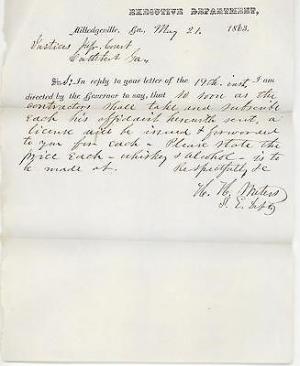 EXECUTIVE DEPARTMENT,
Milledgeville, Ga., May 21. 1863.
Justices Inf. Court
Ga.
In reply to your letter of the 19th inst, I am
directed by the Governor to say, that so soon as the
contractors shall take and subscribe
each his affidavit herewith sent, a
license will be issued & forwarded
to you for each - Please state the
price each - whiskey & alcohol - is to
be made at. Respectfully, &c
H. H. Waters